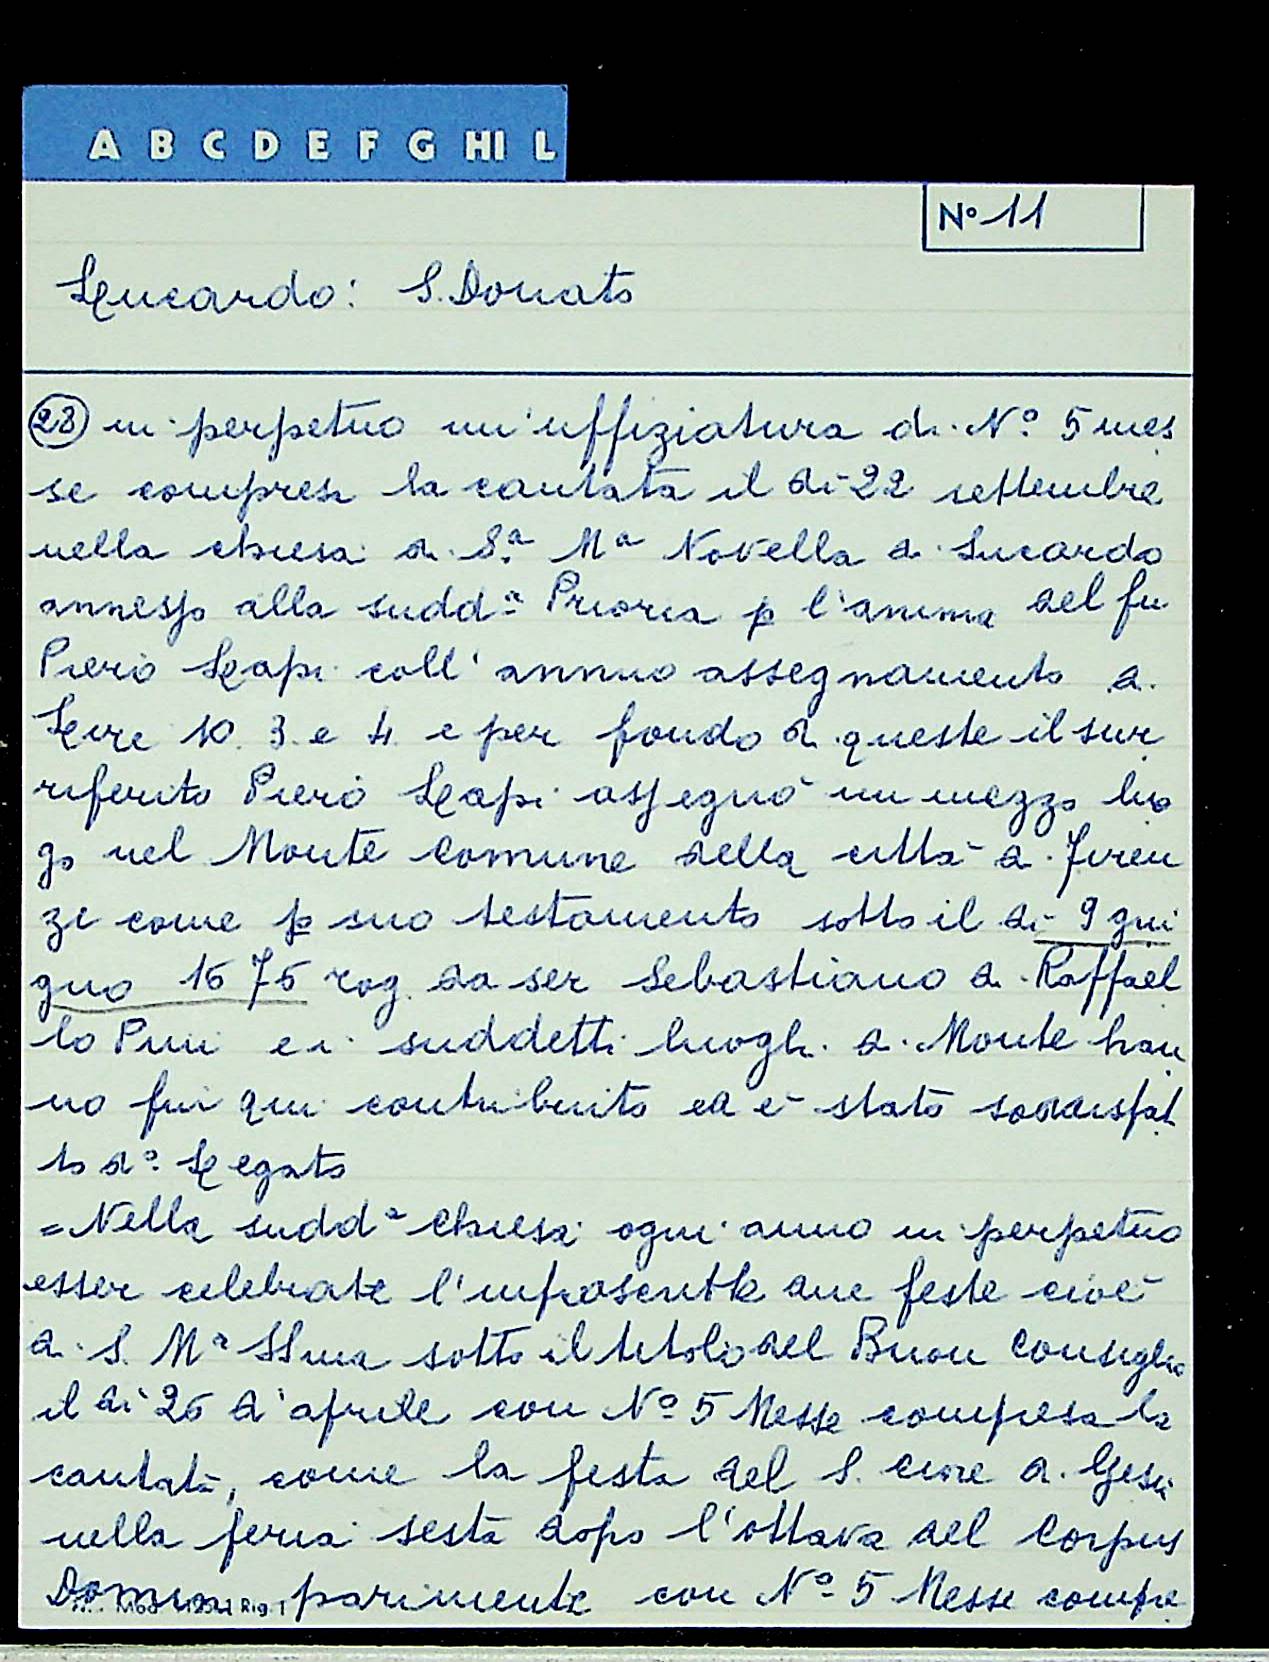 A B C D E F G HI L
N° 11
Lucardo: S. Donato
(28) in perpetuo un'uffiziatura di N.° 5 mes
se compresa la cantata il dì 22 settembre
nella chiesa di S.ª Mª Novella a Lucardo
annesso alla sudd.ª Prioria p l'anima del fu
Piero Lapi coll'annuo assegnamento di
Lire 10. 3. e 4. e per fondo di queste il sur
riferito Piero Lapi assegnò un mezzo luo
go nel Monte Comune della città di Firen
ze come p suo testamento sotto il dì 9 giu
gno 1675 rog. da ser Sebastiano di Raffael
lo Pini e i suddetti luoghi di Monte han
no fin qui contribuito ed è stato soddisfat
to d.° Legato
= Nella sudd.ª chiesa ogni anno in perpetuo
esser celebrate l'infrascritte due feste cioè
di S. Mª SSma sotto il titolo del Buon Consiglio
il dì 26 d'aprile con N.° 5 Messe compresa la
cantata, come la festa del S. cuore di Gesù
nella feria sesta dopo l'ottava del Corpus
Domini parimente con N.° 5 Messe compre
Rig. 1